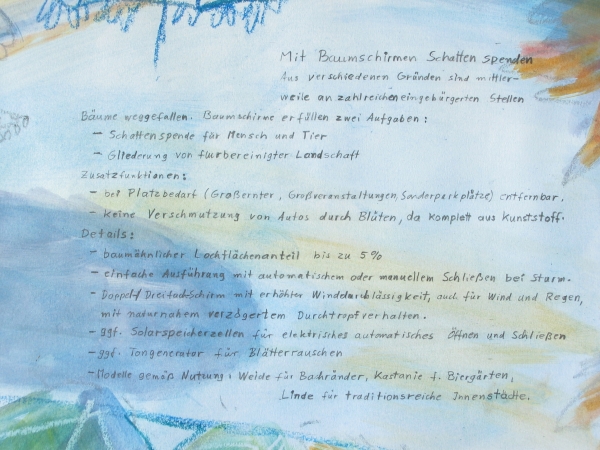 Mit Baumschirmen Schatten spenden
Aus verschiedenen Gründen sind mittler-
weile an zahlreichen eingebürgerten Stellen
Bäume weggefallen. Baumschirme erfüllen zwei Aufgaben:
- Schattenspende für Mensch und Tier
- Gliederung von flurbereinigter Landschaft
Zusatzfunktionen:
- bei Platzbedarf (Großernter, Großveranstaltungen, Sonderparkplätze) entfernbar.
- keine Verschmutzung von Autos durch Blüten, da komplett aus Kunststoff.
Details:
- baumähnlicher Lochflächenanteil bis zu 5%
- einfache Ausführung mit automatischem oder manuellem Schließen bei Sturm.
- Doppel-/Dreifach-Schirm mit erhöhter Winddurchlässigkeit, auch für Wind und Regen,
mit naturnahem verzögertem Durchtropfverhalten.
- ggf. Solarspeicherzellen für elektrisches automatisches Öffnen und Schließen
- ggf. Tongenerator für Blätterrauschen
- Modelle gemäß Nutzung: Weide für Bachränder, Kastanie f. Biergärten,
Linde für traditionsreiche Innenstädte.